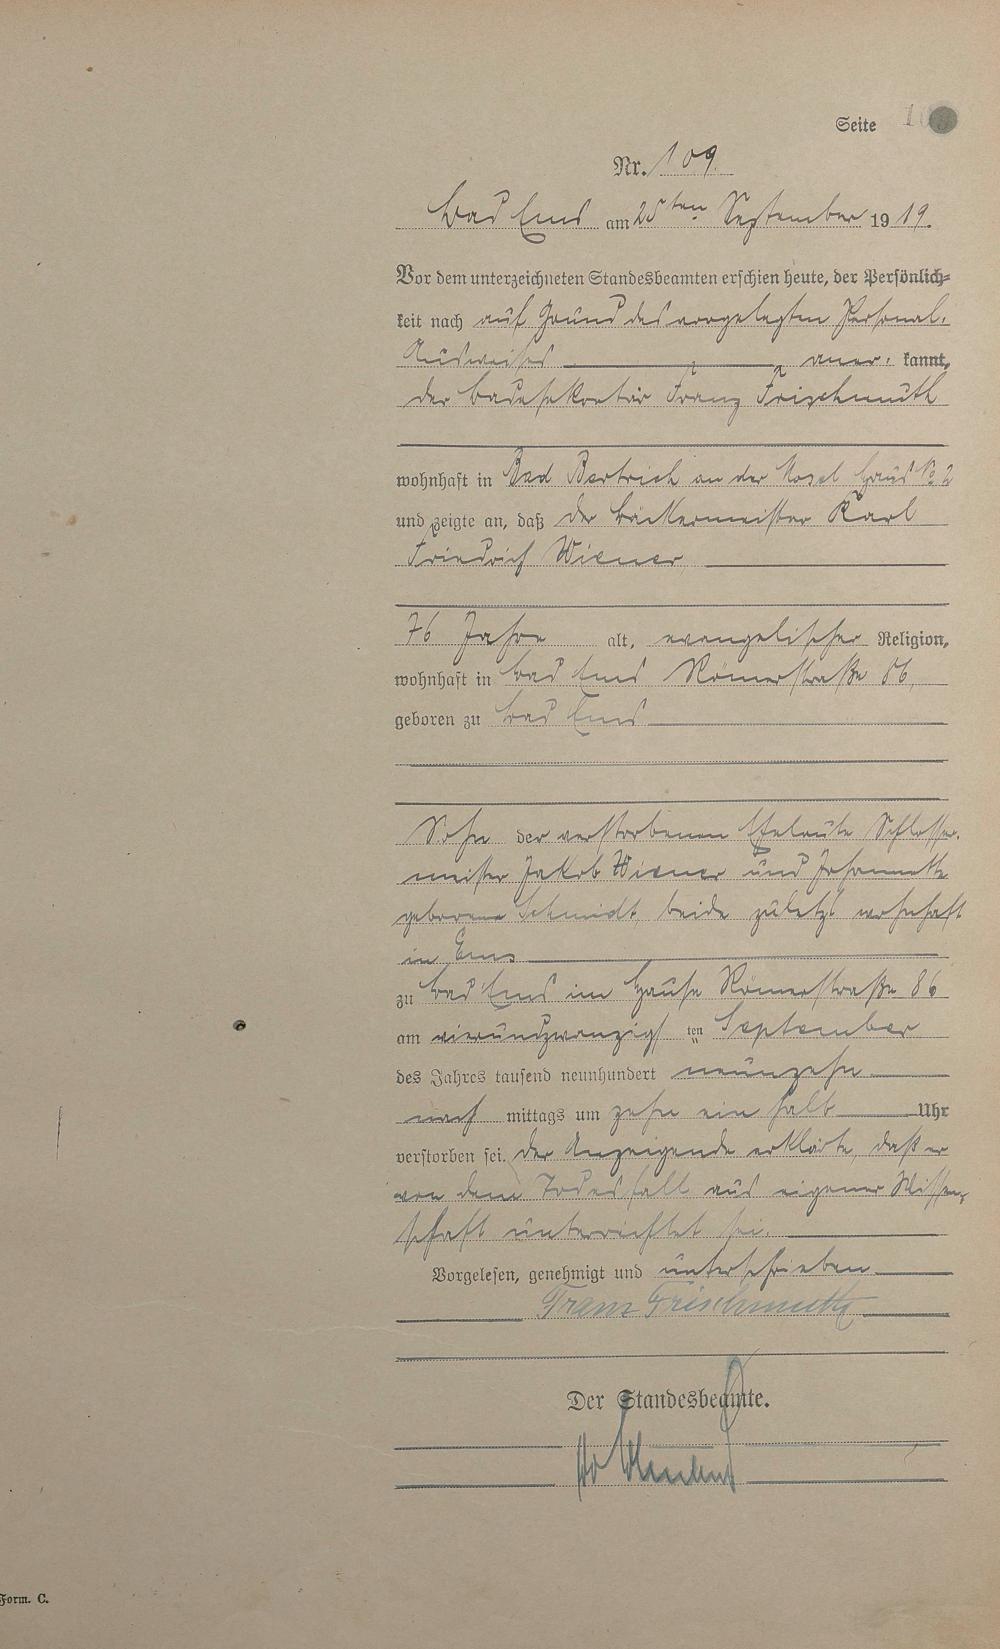 Seite
Nr. 109.
Bad Ems am 25ten September 1919.
Vor dem unterzeichneten Standesbeamten erschien heute, der Persönlich=
keit nach auf Grund des vorgelegten Personal-
Ausweises aner- kannt,
der Badesekretär Franz Frischmuth
wohnhaft in Bad Bertrich an der Mosel Haus No 2
und zeigte an, daß der Bäckermeister Karl
Friedrich Wiener
76 Jahre alt, evangelischer Religion,
wohnhaft in Bad Ems Römerstraße 86,
geboren zu Bad Ems
Sohn der verstorbenen Eheleute Schlosser-
meister Jakob Wiener und Johannette
geborene Schmidt, beide zuletzt wohnhaft
in Ems
zu Bad Ems im Hause Römerstraße 86
am vierundzwanzigsten September
des Jahres tausend neunhundert neunzehn
nach mittags um zehn ein halb Uhr
verstorben sei. Der Anzeigende erklärte, daß er
von dem Todesfall aus eigener Wissen-
schaft unterrichtet sei.
Vorgelesen, genehmigt und unterschrieben
Franz Frischmuth
Der Standesbeamte.
Form. C.